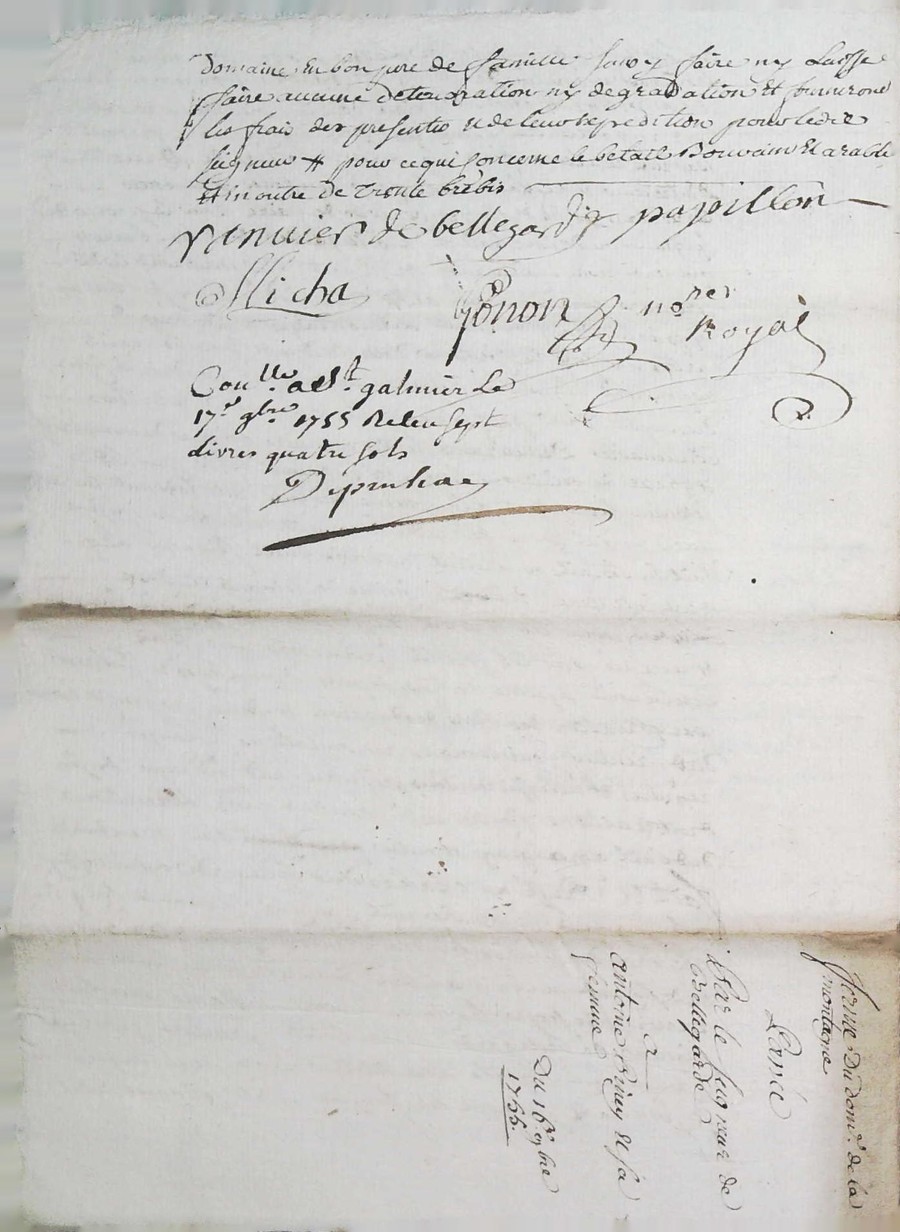 domaine En bon pere de famille sans y faire ny Laisse
faire aucune deterioration ny degradation Et fourniront
les frais des presentes et de leur expedition pour ledit
seigneur # pour ce qui concerne le betail Bouvain Et arable
# En outre de trente brebis
vanuier de bellegarde papillon
Micha
Ponon no.re
Royal
Con.lle a St. galmier Le
17.e 9bre 1755 Releu sept
livres quatre sols
Ferme Du dom.e de la
montagne
Lancé
Par le seigneur de
Bellegarde
a
antoine Piney et sa
femme
Du 16.e 9bre
1755.